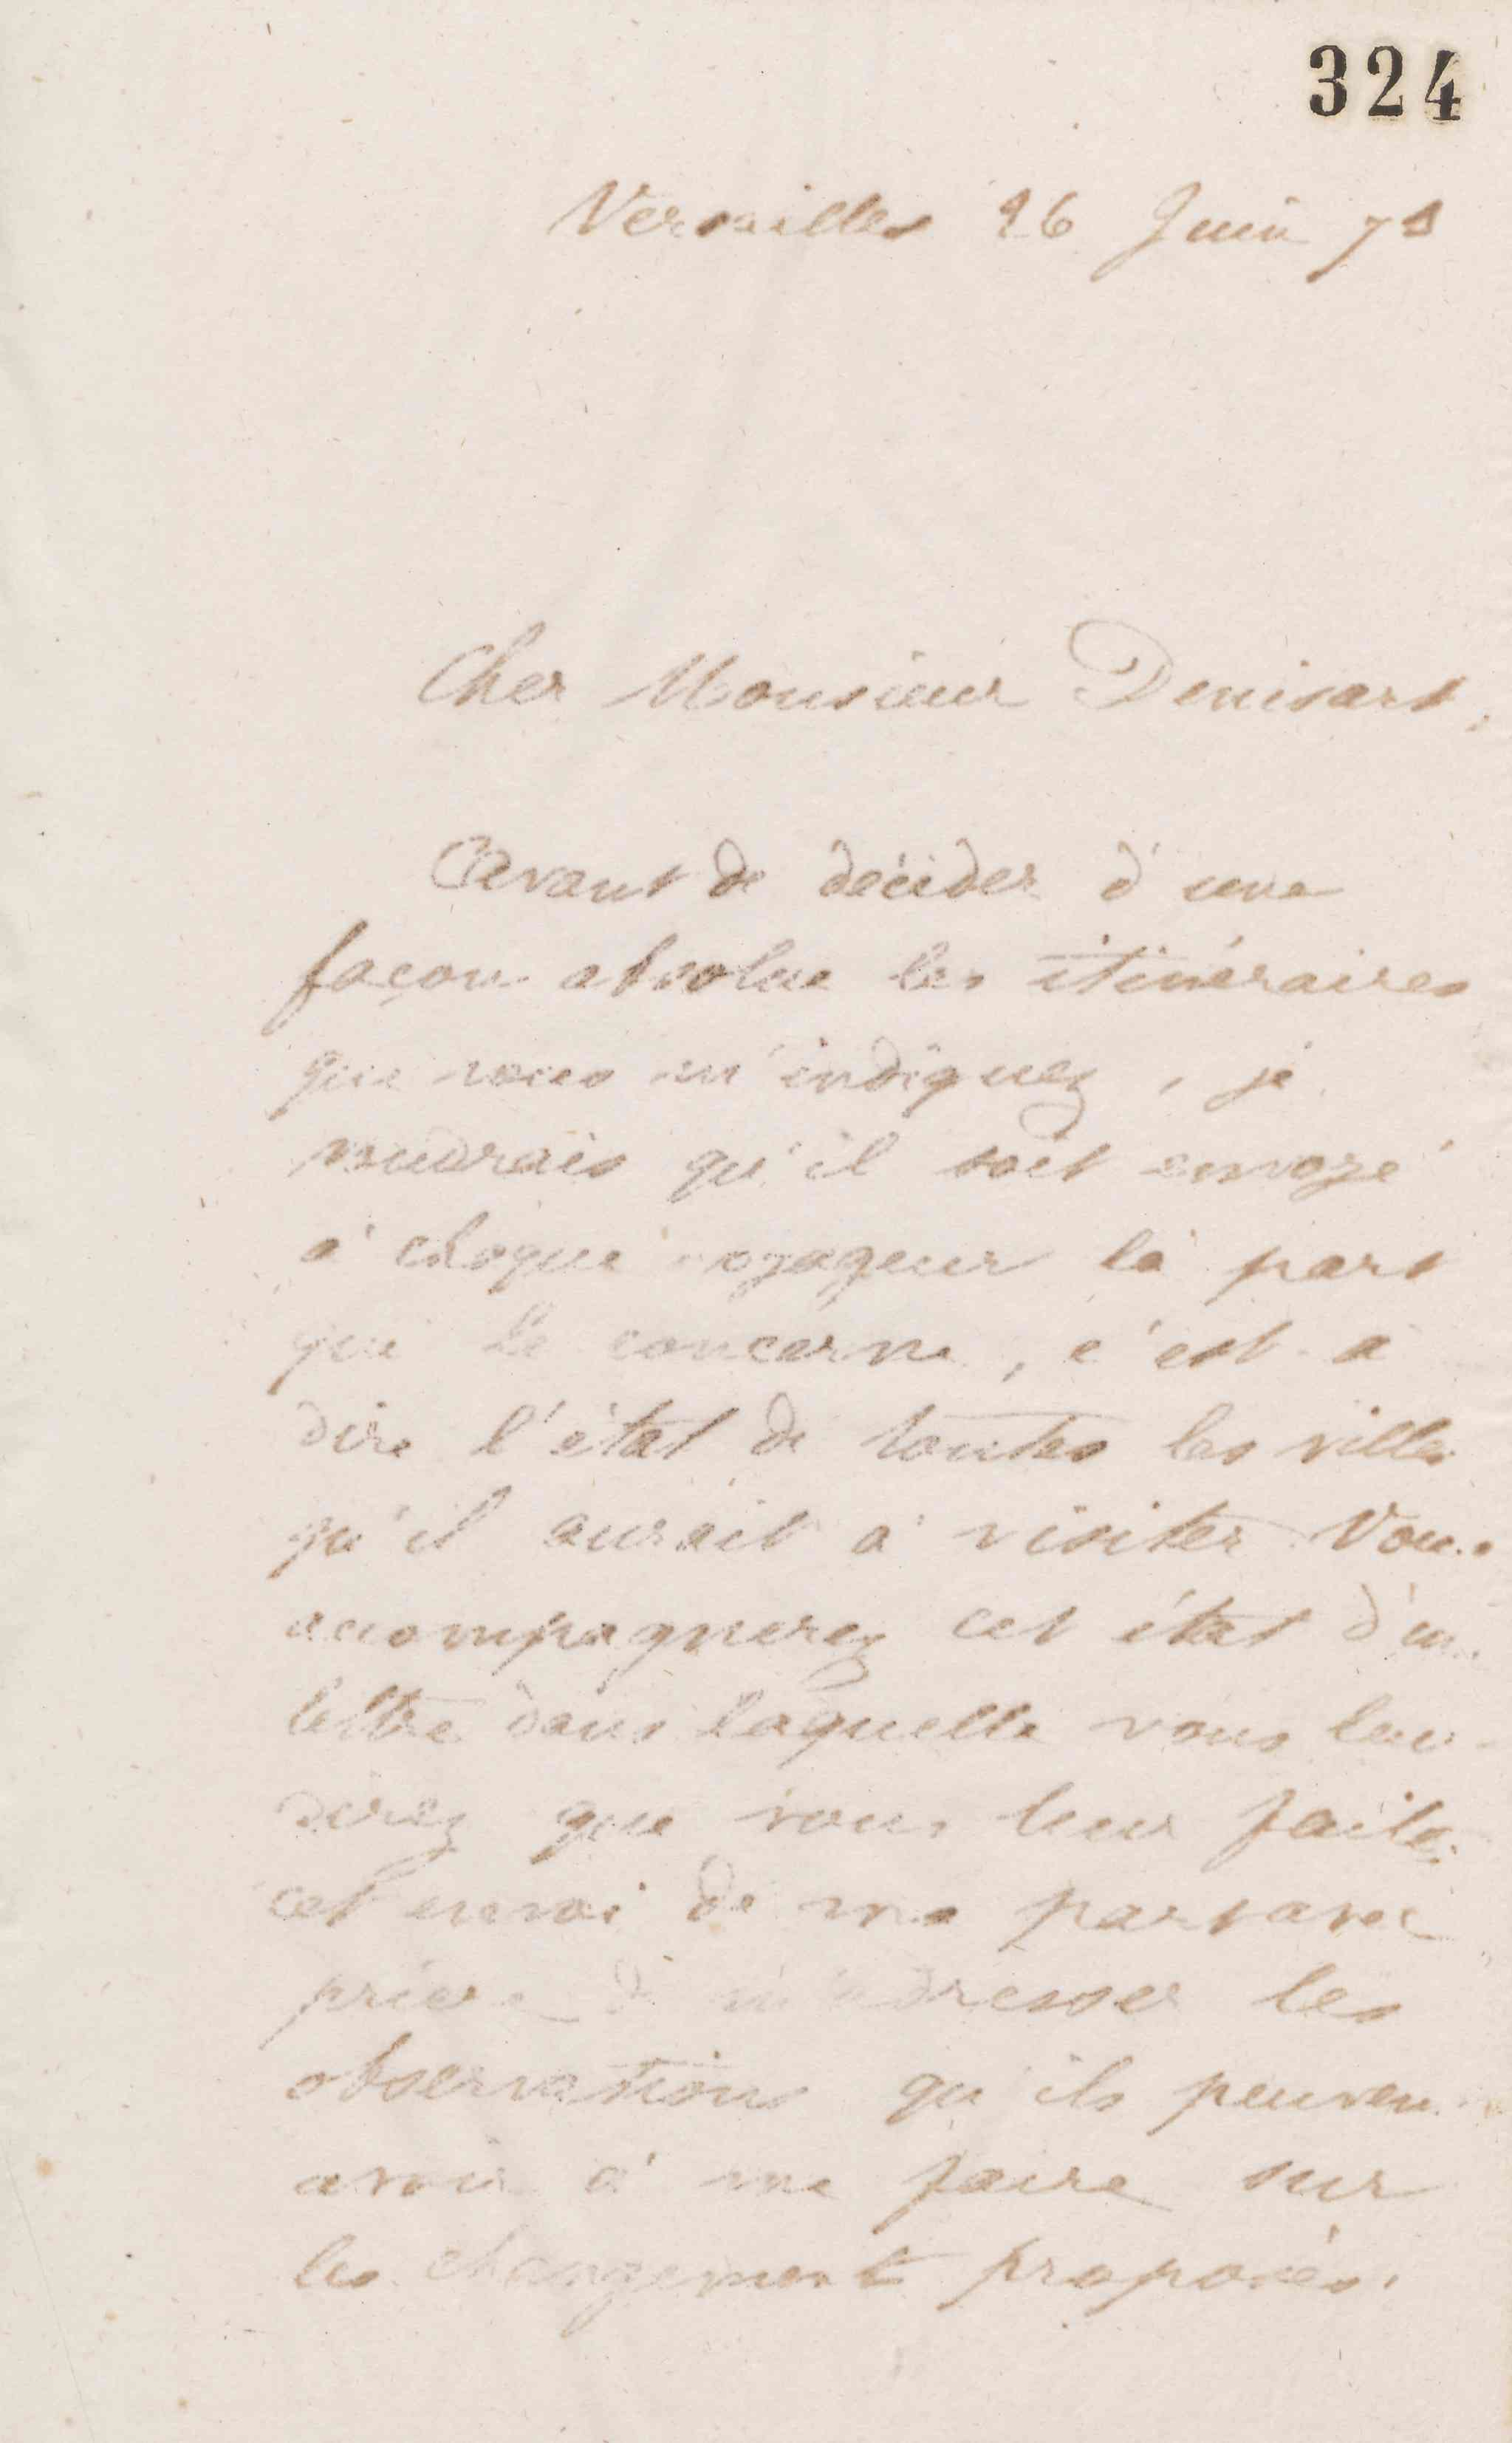 324
Versailles 26 Juin 71
Cher Monsieur Denisart,
Avant de décider d'une
façon absolue les itinéraires
que vous m'indiquez, je
voudrais qu'il soit envoyé
à chaque voyageur la part
qui le concerne, c'est à
dire l'état de toutes les villes
qu'il aurait à visiter. Vous
accompagnerez cet état d'un
lettre dans laquelle vous leur
direz que vous leur faites
cet envoi de ma part avec
prière de m'adresser les
observations qu'ils peuven
avoir à me faire sur
les changement proposés.